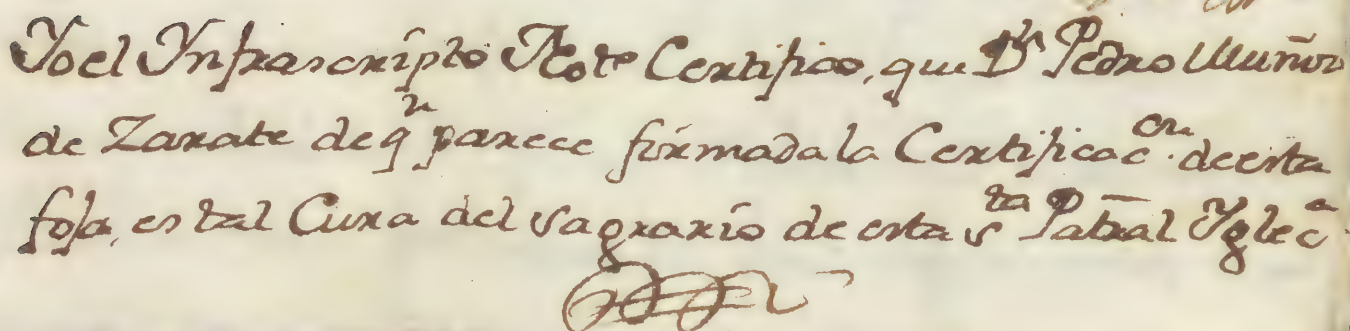 Yo el Ynfrascripto Noto Certifico, que Dn Pedro Muñoz
de Zarate de qn parece firmada la Certificacon de esta
foja, es tal Cura del Sagrario de esta Sta Patral Yglecª